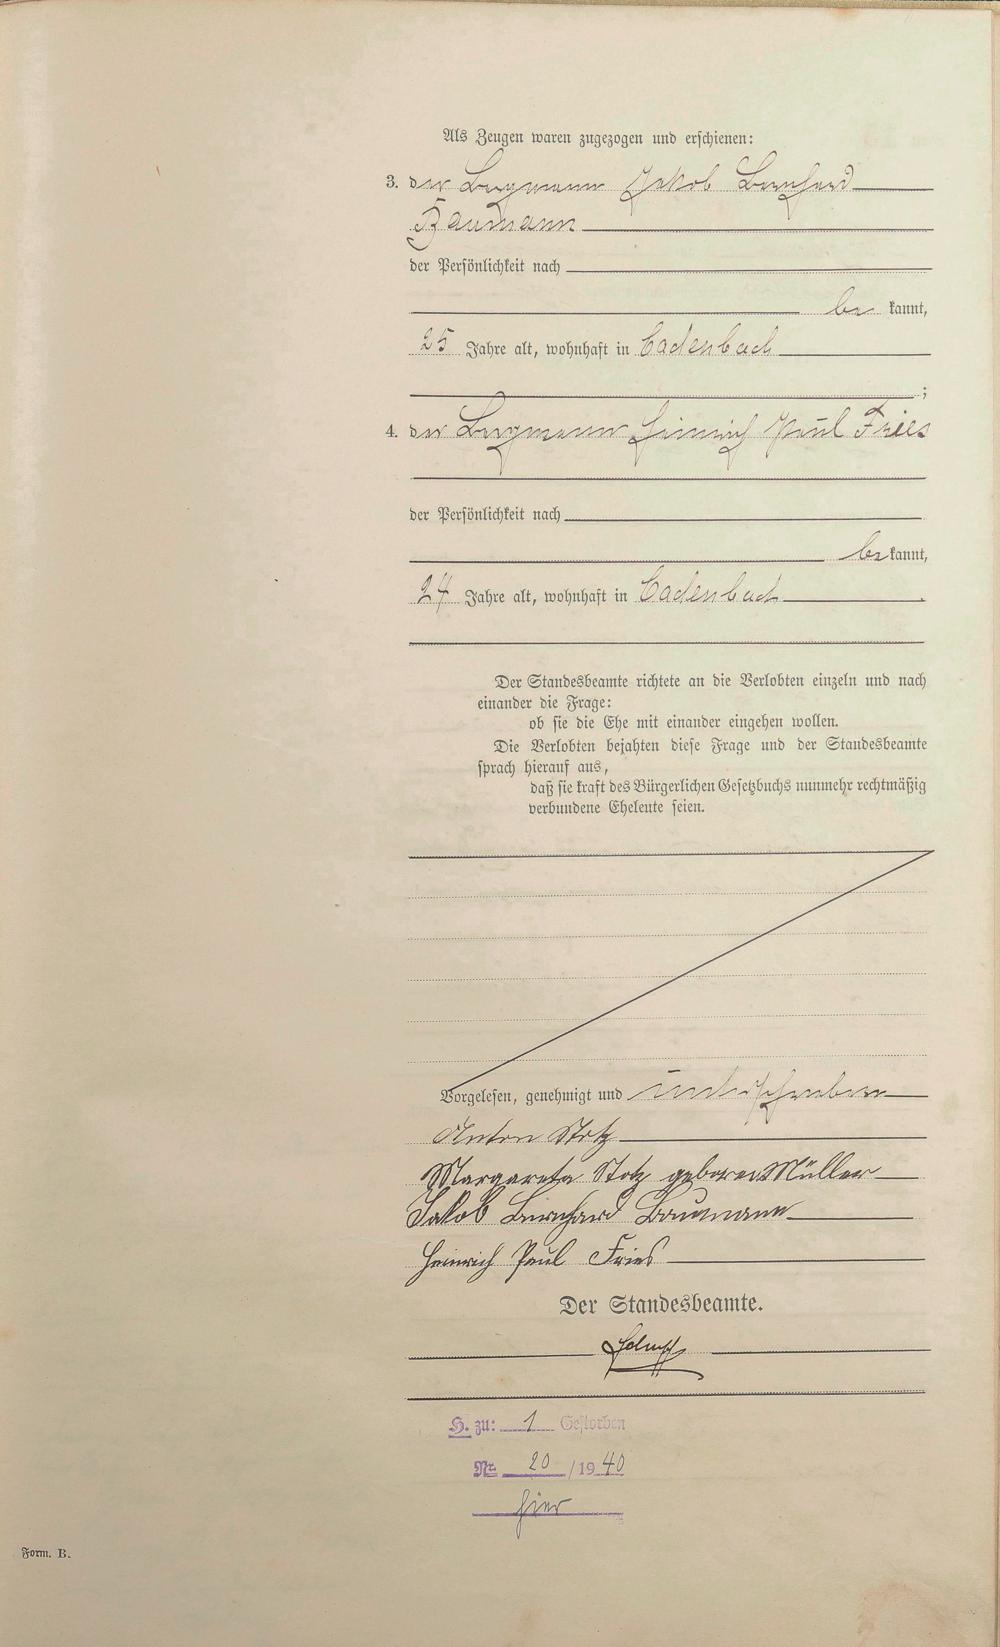 Als Zeugen waren zugezogen und erschienen:
3. der Bergmann Jakob Bernhard
Baumann
der Persönlichkeit nach
be kannt,
25 Jahre alt, wohnhaft in Cadenbach
;
4. der Bergmann Heinrich Paul Fries
der Persönlichkeit nach
be kannt,
24 Jahre alt, wohnhaft in Cadenbach
Der Standesbeamte richtete an die Verlobten einzeln und nach
einander die Frage:
ob sie die Ehe mit einander eingehen wollen.
Die Verlobten bejahten diese Frage und der Standesbeamte
sprach hierauf aus,
daß sie kraft des Bürgerlichen Gesetzbuchs nunmehr rechtmäßig
verbundene Eheleute seien.
Vorgelesen, genehmigt und unterschrieben
Anton Stotz
Margareta Stotz geboren Müller
Jakob Bernhard Baumann
Heinrich Paul Fries
Der Standesbeamte.
H. zu: 1 Gestorben
Nr. 20 / 1940
hier
Form. B.